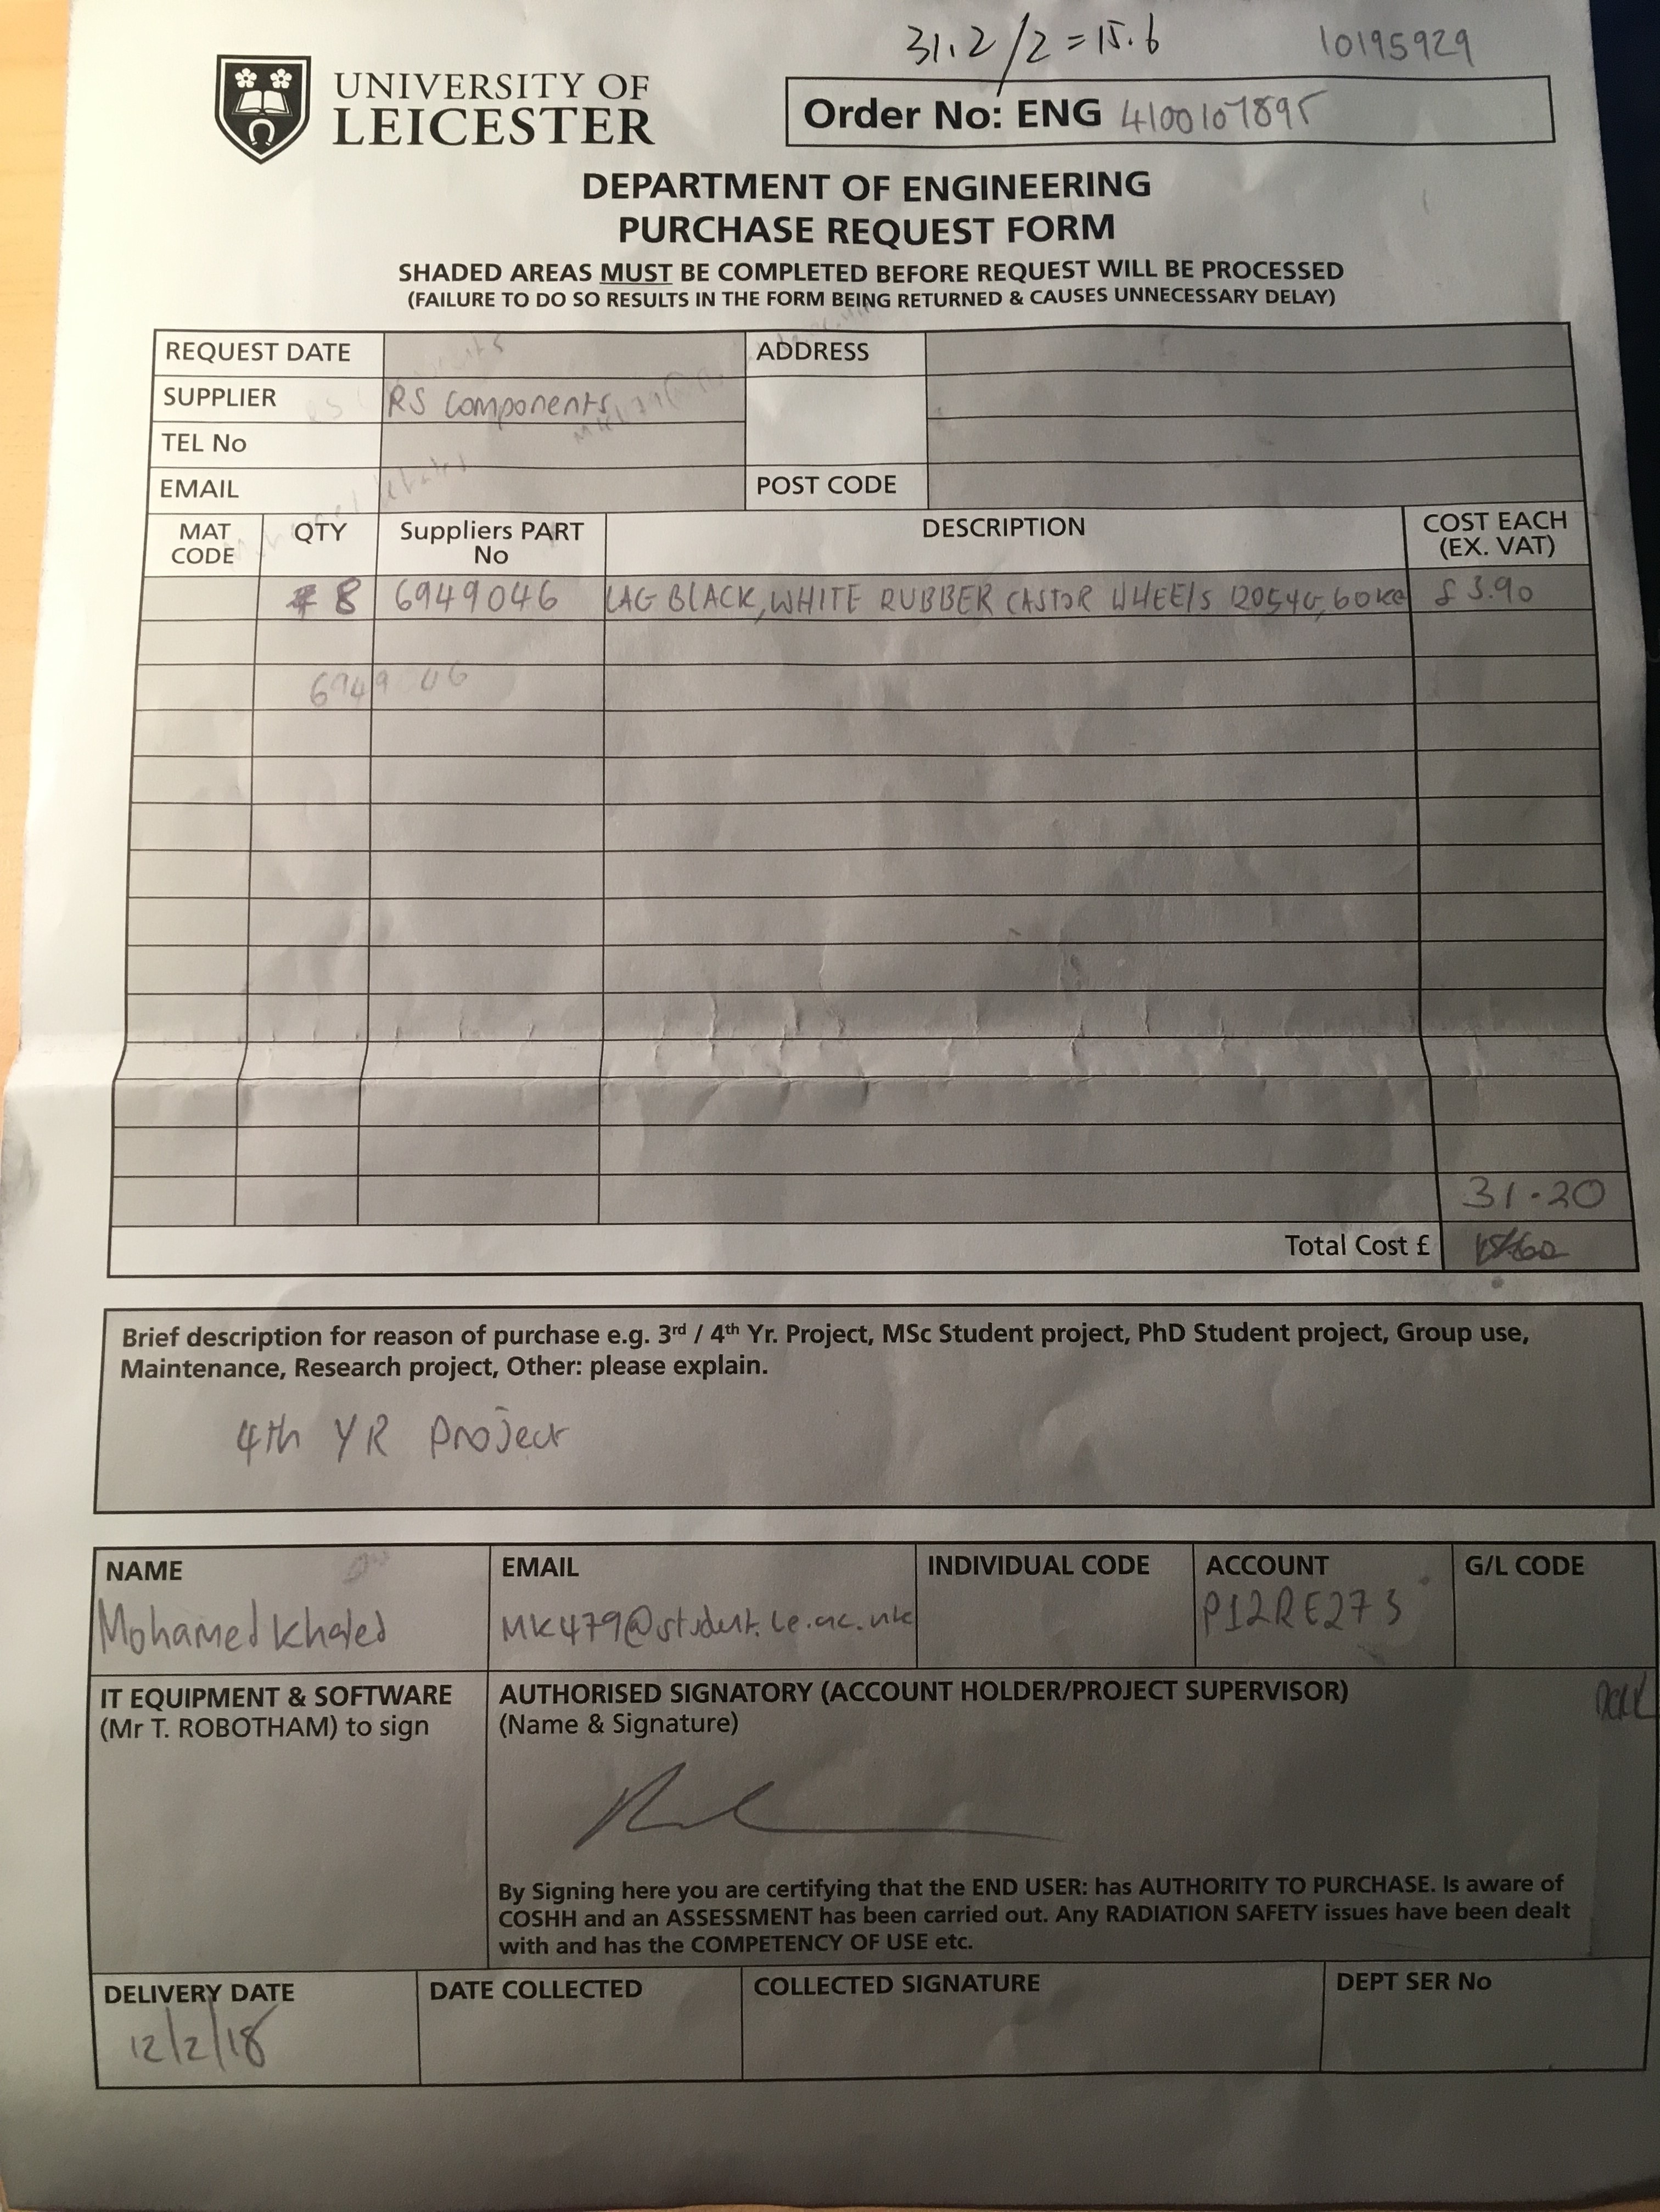 31.2/2=15.6
10195929
UNIVERSITY OF
LEICESTER
Order No: ENG 4100107895
DEPARTMENT OF ENGINEERING
PURCHASE REQUEST FORM
SHADED AREAS MUST BE COMPLETED BEFORE REQUEST WILL BE PROCESSED
(FAILURE TO DO SO RESULTS IN THE FORM BEING RETURNED & CAUSES UNNECESSARY DELAY)
REQUEST DATE ADDRESS
SUPPLIER RS Components
TEL No
EMAIL POST CODE
MAT CODE QTY Suppliers PART No DESCRIPTION COST EACH (EX. VAT)
8 6949046 LAG BLACK, WHITE RUBBER CASTOR WHEELS 12054G, 60KG £3.90
6949 46
31.20
Total Cost £
Brief description for reason of purchase e.g. 3rd / 4th Yr. Project, MSc Student project, PhD Student project, Group use,
Maintenance, Research project, Other: please explain.
4th YR Project
NAME EMAIL INDIVIDUAL CODE ACCOUNT G/L CODE
Mohamed Khaled MK479@student.le.ac.uk P12RE273
IT EQUIPMENT & SOFTWARE
(Mr T. ROBOTHAM) to sign
AUTHORISED SIGNATORY (ACCOUNT HOLDER/PROJECT SUPERVISOR)
(Name & Signature)
By Signing here you are certifying that the END USER: has AUTHORITY TO PURCHASE. Is aware of
COSHH and an ASSESSMENT has been carried out. Any RADIATION SAFETY issues have been dealt
with and has the COMPETENCY OF USE etc.
DELIVERY DATE DATE COLLECTED COLLECTED SIGNATURE DEPT SER No
12/2/18